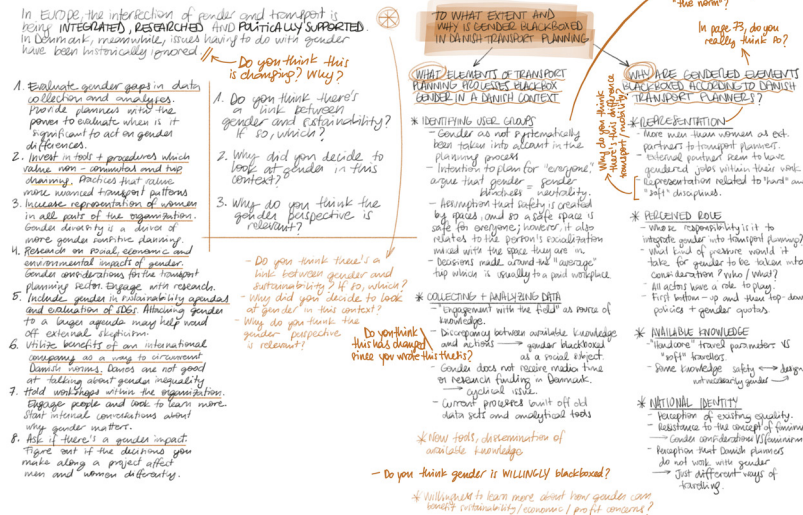 In EUROPE, the intersection of gender and transport is
being INTEGRATED, RESEARCHED AND POLITICALLY SUPPORTED.
In Denmark, meanwhile, issues having to do with gender
have been historically ignored.
Do you think this
is changing? Why?
1. Evaluate gender gaps in data
collection and analyses.
Provide planners with the
power to evaluate when is it
significant to act on gender
differences.
2. Invest in tools + procedures which
value non-commutes and trip
chaining. Practices that value
more nuanced transport patterns
3. Increase representation of women
in all parts of the organization.
Gender diversity is a driver of
more gender sensitive planning.
4. Research on social, economic and
environmental impacts of gender.
Gender considerations for the transport
planning sector. Engage with research.
5. Include gender in sustainability agendas
and evaluation of SDGs. Attaching gender
to a larger agenda may help ward
off external skepticism.
6. Utilize benefits of an international
company as a way to circumvent
Danish norms. Danes are not good
at talking about gender inequality
7. Hold workshops within the organization.
Engage people and look to learn more.
Start internal conversations about
why gender matters.
8. Ask if there's a gender impact.
Figure out if the decisions you
make along a project affect
men and women differently.
1. Do you think there's
a link between
gender and sustainability?
If so, which?
2. Why did you decide to
look at gender in this
context?
3. Why do you think the
gender perspective is
relevant?
- Do you think there's a
link between gender and
sustainability? If so, which?
- Why did you decide to look
at gender in this context?
- Why do you think the
gender perspective
is relevant?
TO WHAT EXTENT AND
WHY IS GENDER BLACKBOXED
IN DANISH TRANSPORT PLANNING
WHAT ELEMENTS OF TRANSPORT
PLANNING PROCESSES BLACKBOX
GENDER IN A DANISH CONTEXT
* IDENTIFYING USER GROUPS
- Gender as not systematically
been taken into account in the
planning process
- Intention to plan for "everyone,"
argue that gender = gender
blindness neutrality.
- Assumption that safety is created
by spaces, and so a safe space is
safe for everyone; however, it also
relates to the person's socialization
mixed with the space they are in
- Decisions made around the "average"
trip which is usually to a paid workplace
* COLLECTING + ANALYZING DATA
- "Engagement with the field" as source of
knowledge.
- Discrepancy between available knowledge
and actions → gender blackboxed
as a social subject.
- Gender does not receive media time
or research funding in Denmark.
→ cyclical issue.
- Current processes built off old
data sets and analytical tools
Do you think
this has changed
since you wrote this thesis?
* New tools, dissemination of
available knowledge
- Do you think gender is WILLINGLY blackboxed?
* Willingness to learn more about how gender can
benefit sustainability/economic/profit concerns?
"the norm"?
In page 73, do you
really think so?
WHY ARE GENDERED ELEMENTS
BLACKBOXED ACCORDING TO DANISH
TRANSPORT PLANNERS?
Why do you think
there's this difference
transport/mobility?
* REPRESENTATION
- More men than women as ext.
partners to transport planners.
- External partners seem to have
gendered jobs within their work
Representation related to "hard" an
"soft" disciplines.
* PERCEIVED ROLE
- Whose responsibility is it to
integrate gender into transport planning?
- What kind of pressure would it
take for gender to be taken into
consideration? Who/What?
- All actors have a role to play.
- First bottom-up and then top-down
policies + gender quotas.
* AVAILABLE KNOWLEDGE
- "Hardcore" travel parameters VS
"soft" travellers.
- Some knowledge safety ↔ design
not necessarily gender
* NATIONAL IDENTITY
- Perception of existing equality.
- Resistance to the concept of feminism
→ Gender considerations VS feminism
- Perception that Danish planners
do not work with gender
→ Just different ways of
travelling.